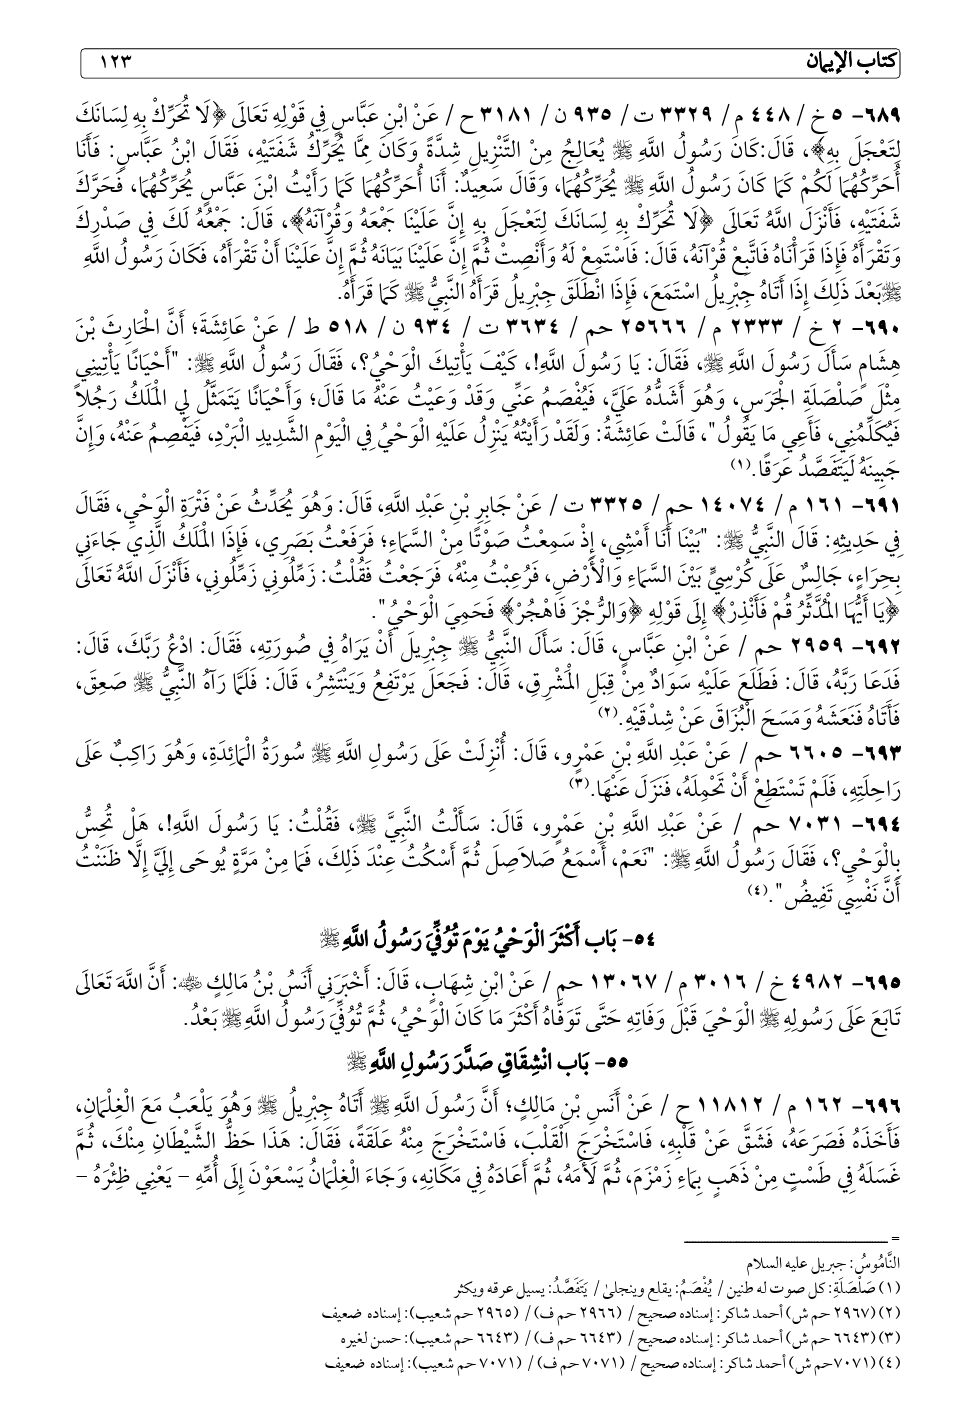 كتاب الإيمان ١٢٣
٦٨٩- ٥ خ / ٤٤٨ م / ٣٣٢٩ ت / ٩٣٥ ن / ٣١٨١ ح / عَنْ ابْنِ عَبَّاسٍ فِي قَوْلِهِ تَعَالَى ﴿لَا تُحَرِّكْ بِهِ لِسَانَكَ
لِتَعْجَلَ بِهِ﴾، قَالَ:كَانَ رَسُولُ اللَّهِ ﷺ يُعَالِجُ مِنْ التَّنْزِيلِ شِدَّةً وَكَانَ مِمَّا يُحَرِّكُ شَفَتَيْهِ، فَقَالَ ابْنُ عَبَّاسٍ: فَأَنَا
أُحَرِّكُهُمَا لَكُمْ كَمَا كَانَ رَسُولُ اللَّهِ ﷺ يُحَرِّكُهُمَا، وَقَالَ سَعِيدٌ: أَنَا أُحَرِّكُهُمَا كَمَا رَأَيْتُ ابْنَ عَبَّاسٍ يُحَرِّكُهُمَا، فَحَرَّكَ
شَفَتَيْهِ، فَأَنْزَلَ اللَّهُ تَعَالَى ﴿لَا تُحَرِّكْ بِهِ لِسَانَكَ لِتَعْجَلَ بِهِ إِنَّ عَلَيْنَا جَمْعَهُ وَقُرْآنَهُ﴾، قَالَ: جَمْعُهُ لَكَ فِي صَدْرِكَ
وَتَقْرَأَهُ فَإِذَا قَرَأْنَاهُ فَاتَّبِعْ قُرْآنَهُ، قَالَ: فَاسْتَمِعْ لَهُ وَأَنْصِتْ ثُمَّ إِنَّ عَلَيْنَا بَيَانَهُ ثُمَّ إِنَّ عَلَيْنَا أَنْ تَقْرَأَهُ، فَكَانَ رَسُولُ اللَّهِ
ﷺبَعْدَ ذَلِكَ إِذَا أَتَاهُ جِبْرِيلُ اسْتَمَعَ، فَإِذَا انْطَلَقَ جِبْرِيلُ قَرَأَهُ النَّبِيُّ ﷺ كَمَا قَرَأَهُ.
٦٩٠- ٢ خ / ٢٣٣٣ م / ٢٥٦٦٦ حم / ٣٦٣٤ ت / ٩٣٤ ن / ٥١٨ ط / عَنْ عَائِشَةَ؛ أَنَّ الْحَارِثَ بْنَ
هِشَامٍ سَأَلَ رَسُولَ اللَّهِ ﷺ، فَقَالَ: يَا رَسُولَ اللَّهِ!، كَيْفَ يَأْتِيكَ الْوَحْيُ؟، فَقَالَ رَسُولُ اللَّهِ ﷺ: "أَحْيَانًا يَأْتِينِي
مِثْلَ صَلْصَلَةِ الْجَرَسِ، وَهُوَ أَشَدُّهُ عَلَيَّ، فَيُفْصَمُ عَنِّي وَقَدْ وَعَيْتُ عَنْهُ مَا قَالَ؛ وَأَحْيَانًا يَتَمَثَّلُ لِي الْمَلَكُ رَجُلًا
فَيُكَلِّمُنِي، فَأَعِي مَا يَقُولُ"، قَالَتْ عَائِشَةُ: وَلَقَدْ رَأَيْتُهُ يَنْزِلُ عَلَيْهِ الْوَحْيُ فِي الْيَوْمِ الشَّدِيدِ الْبَرْدِ، فَيَفْصِمُ عَنْهُ، وَإِنَّ
جَبِينَهُ لَيَتَفَصَّدُ عَرَقًا.(١)
٦٩١- ١٦١ م / ١٤٠٧٤ حم / ٣٣٢٥ ت / عَنْ جَابِرِ بْنِ عَبْدِ اللَّهِ، قَالَ: وَهُوَ يُحَدِّثُ عَنْ فَتْرَةِ الْوَحْيِ، فَقَالَ
فِي حَدِيثِهِ: قَالَ النَّبِيُّ ﷺ: "بَيْنَا أَنَا أَمْشِي، إِذْ سَمِعْتُ صَوْتًا مِنْ السَّمَاءِ؛ فَرَفَعْتُ بَصَرِي، فَإِذَا الْمَلَكُ الَّذِي جَاءَنِي
بِحِرَاءٍ، جَالِسٌ عَلَى كُرْسِيٍّ بَيْنَ السَّمَاءِ وَالْأَرْضِ، فَرُعِبْتُ مِنْهُ، فَرَجَعْتُ فَقُلْتُ: زَمِّلُونِي زَمِّلُونِي، فَأَنْزَلَ اللَّهُ تَعَالَى
﴿يَا أَيُّهَا الْمُدَّثِّرُ قُمْ فَأَنْذِرْ﴾ إِلَى قَوْلِهِ ﴿وَالرُّجْزَ فَاهْجُرْ﴾ فَحَمِيَ الْوَحْيُ".
٦٩٢- ٢٩٥٩ حم / عَنْ ابْنِ عَبَّاسٍ، قَالَ: سَأَلَ النَّبِيُّ ﷺ جِبْرِيلَ أَنْ يَرَاهُ فِي صُورَتِهِ، فَقَالَ: ادْعُ رَبَّكَ، قَالَ:
فَدَعَا رَبَّهُ، قَالَ: فَطَلَعَ عَلَيْهِ سَوَادٌ مِنْ قِبَلِ الْمَشْرِقِ، قَالَ: فَجَعَلَ يَرْتَفِعُ وَيَنْتَشِرُ، قَالَ: فَلَمَّا رَآهُ النَّبِيُّ ﷺ صَعِقَ،
فَأَتَاهُ فَنَعَشَهُ وَمَسَحَ الْبُزَاقَ عَنْ شِدْقَيْهِ.(٢)
٦٩٣- ٦٦٠٥ حم / عَنْ عَبْدِ اللَّهِ بْنِ عَمْرٍو، قَالَ: أُنْزِلَتْ عَلَى رَسُولِ اللَّهِ ﷺ سُورَةُ الْمَائِدَةِ، وَهُوَ رَاكِبٌ عَلَى
رَاحِلَتِهِ، فَلَمْ تَسْتَطِعْ أَنْ تَحْمِلَهُ، فَنَزَلَ عَنْهَا.(٣)
٦٩٤- ٧٠٣١ حم / عَنْ عَبْدِ اللَّهِ بْنِ عَمْرٍو، قَالَ: سَأَلْتُ النَّبِيَّ ﷺ، فَقُلْتُ: يَا رَسُولَ اللَّهِ!، هَلْ تُحِسُّ
بِالْوَحْيِ؟، فَقَالَ رَسُولُ اللَّهِ ﷺ: "نَعَمْ، أَسْمَعُ صَلاصِلَ ثُمَّ أَسْكُتُ عِنْدَ ذَلِكَ، فَمَا مِنْ مَرَّةٍ يُوحَى إِلَيَّ إِلَّا ظَنَنْتُ
أَنَّ نَفْسِي تَفِيضُ".(٤)
٥٤- بَاب أَكْثَرَ الْوَحْيُ يَوْمَ تُوُفِّيَ رَسُولُ اللَّهِ ﷺ
٦٩٥- ٤٩٨٢ خ / ٣٠١٦ م / ١٣٠٦٧ حم / عَنْ ابْنِ شِهَابٍ، قَالَ: أَخْبَرَنِي أَنَسُ بْنُ مَالِكٍ ﷺ: أَنَّ اللَّهَ تَعَالَى
تَابَعَ عَلَى رَسُولِهِ ﷺ الْوَحْيَ قَبْلَ وَفَاتِهِ حَتَّى تَوَفَّاهُ أَكْثَرَ مَا كَانَ الْوَحْيُ، ثُمَّ تُوُفِّيَ رَسُولُ اللَّهِ ﷺ بَعْدُ.
٥٥- بَاب انْشِقَاقِ صَدَّرَ رَسُولِ اللَّهِ ﷺ
٦٩٦- ١٦٢ م / ١١٨١٢ ح / عَنْ أَنَسِ بْنِ مَالِكٍ؛ أَنَّ رَسُولَ اللَّهِ ﷺ أَتَاهُ جِبْرِيلُ ﷺ وَهُوَ يَلْعَبُ مَعَ الْغِلْمَانِ،
فَأَخَذَهُ فَصَرَعَهُ، فَشَقَّ عَنْ قَلْبِهِ، فَاسْتَخْرَجَ الْقَلْبَ، فَاسْتَخْرَجَ مِنْهُ عَلَقَةً، فَقَالَ: هَذَا حَظُّ الشَّيْطَانِ مِنْكَ، ثُمَّ
غَسَلَهُ فِي طَسْتٍ مِنْ ذَهَبٍ بِمَاءِ زَمْزَمَ، ثُمَّ لَأَمَهُ، ثُمَّ أَعَادَهُ فِي مَكَانِهِ، وَجَاءَ الْغِلْمَانُ يَسْعَوْنَ إِلَى أُمِّهِ – يَعْنِي ظِئْرَهُ –
=
النَّامُوسُ: جبريل عليه السلام
(١) صَلْصَلَةِ: كل صوت له طنين / يُفْصَمُ: يقلع وينجلى / يَتَفَصَّدُ: يسيل عرقه ويكثر
(٢) (٢٩٦٧ حم ش) أحمد شاكر: إسناده صحيح / (٢٩٦٦ حم ف) / (٢٩٦٥ حم شعيب): إسناده ضعيف
(٣) (٦٦٤٣ حم ش) أحمد شاكر: إسناده صحيح / (٦٦٤٣ حم ف) / (٦٦٤٣ حم شعيب): حسن لغيره
(٤) (٧٠٧١حم ش) أحمد شاكر: إسناده صحيح / (٧٠٧١ حم ف) / (٧٠٧١ حم شعيب): إسناده ضعيف